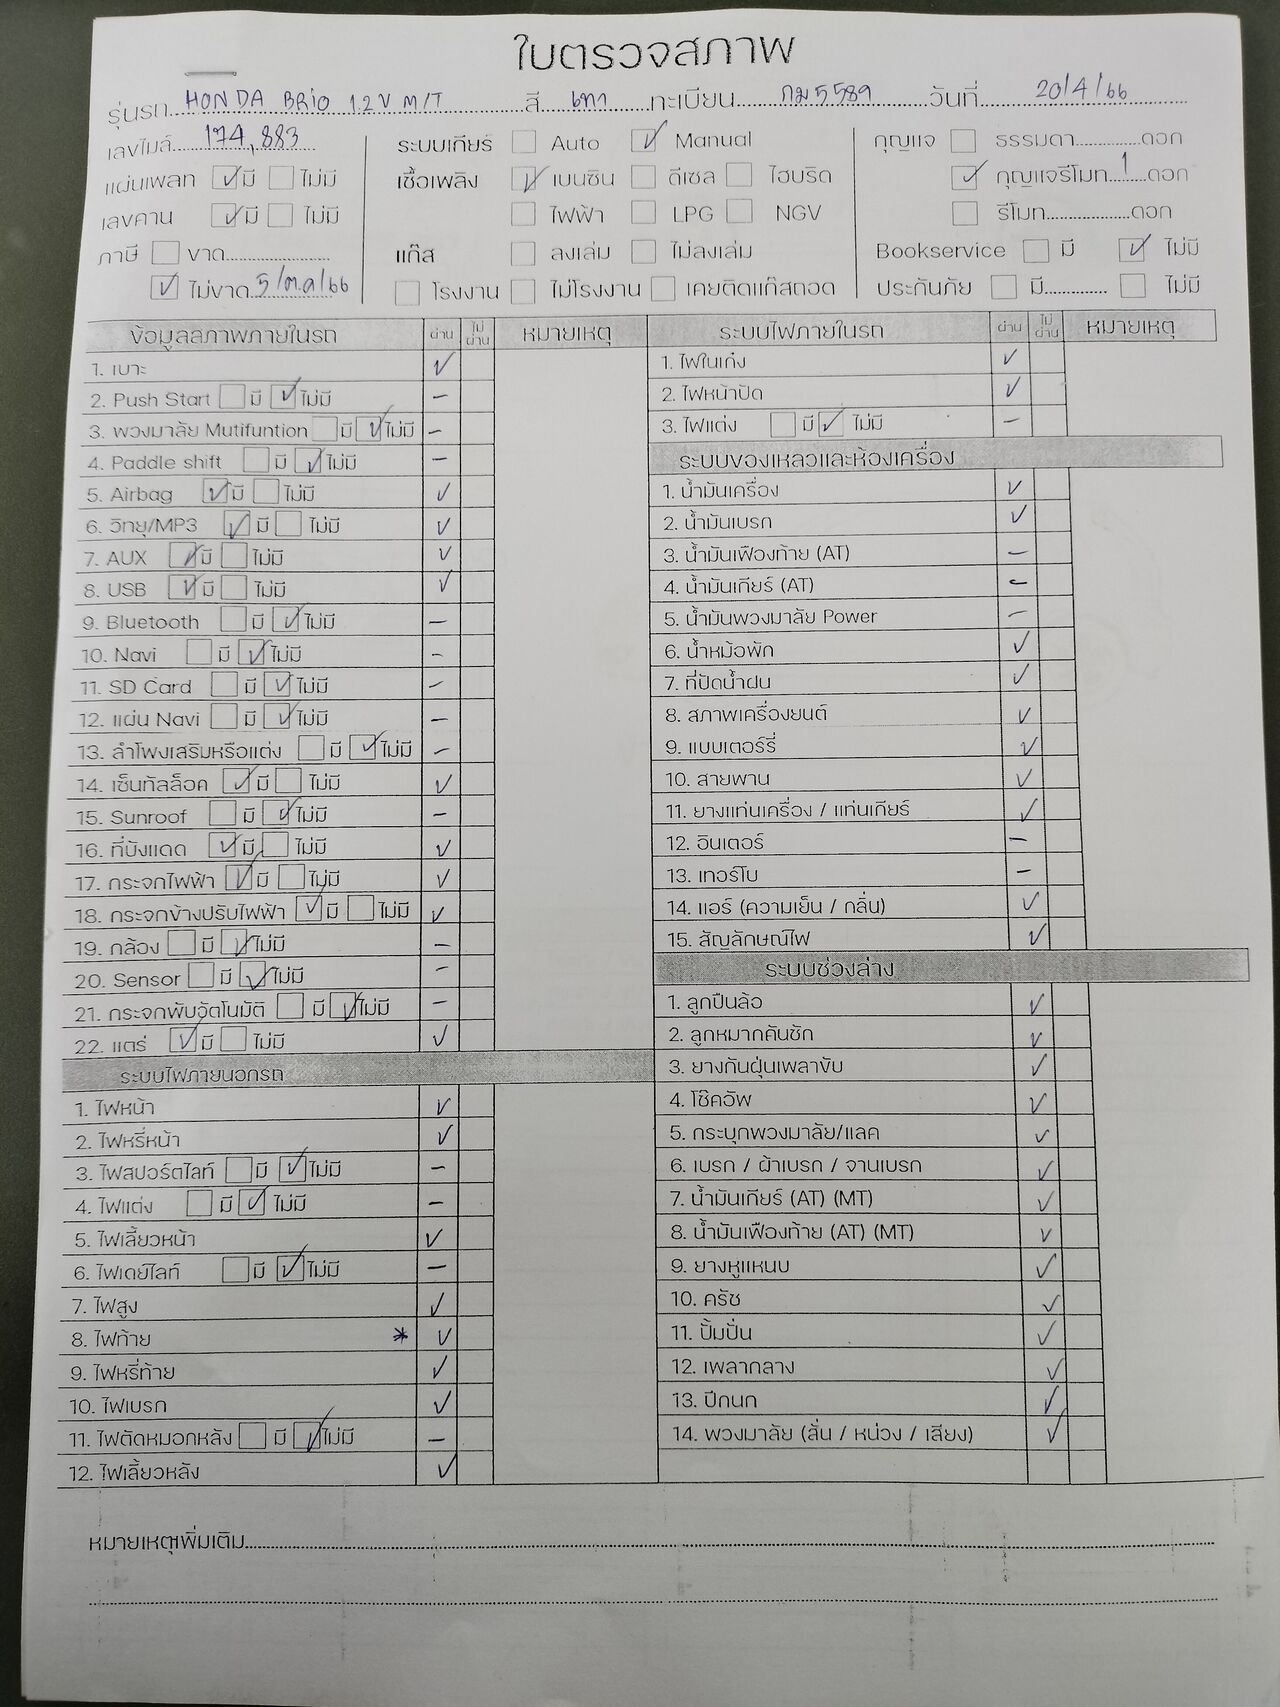 ใบตรวจสภาพ
รุ่นรถ HONDA BRIO 1.2V M/T สี เทา ทะเบียน กม 5589 วันที่ 20/4/66
เลขไมล์ 174,883 ระบบเกียร์ ☐ Auto ☑ Manual กุญแจ ☐ ธรรมดา..............ดอก
แผ่นเพลท ☑ มี ☐ ไม่มี เชื้อเพลิง ☑ เบนซิน ☐ ดีเซล ☐ ไฮบริด ☑ กุญแจรีโมท 1 ดอก
เลขคาน ☑ มี ☐ ไม่มี ☐ ไฟฟ้า ☐ LPG ☐ NGV ☐ รีโมท..................ดอก
ภาษี ☐ ขาด...................... แก๊ส ☐ ลงเล่ม ☐ ไม่ลงเล่ม Bookservice ☐ มี ☑ ไม่มี
☑ ไม่ขาด 5/ต.ค/66 ☐ โรงงาน ☐ ไม่โรงงาน ☐ เคยติดแก๊สถอด ประกันภัย ☐ มี............. ☐ ไม่มี
ข้อมูลสภาพภายในรถ ผ่าน ไม่ผ่าน หมายเหตุ
1. เบาะ ✓
2. Push Start ☐ มี ☑ ไม่มี –
3. พวงมาลัย Mutifuntion ☐ มี ☑ ไม่มี –
4. Paddle shift ☐ มี ☑ ไม่มี –
5. Airbag ☑ มี ☐ ไม่มี ✓
6. วิทยุ/MP3 ☑ มี ☐ ไม่มี ✓
7. AUX ☑ มี ☐ ไม่มี ✓
8. USB ☑ มี ☐ ไม่มี ✓
9. Bluetooth ☐ มี ☑ ไม่มี –
10. Navi ☐ มี ☑ ไม่มี –
11. SD Card ☐ มี ☑ ไม่มี –
12. แผ่น Navi ☐ มี ☑ ไม่มี –
13. ลำโพงเสริมหรือแต่ง ☐ มี ☑ ไม่มี –
14. เซ็นทัลล็อค ☑ มี ☐ ไม่มี ✓
15. Sunroof ☐ มี ☑ ไม่มี –
16. ที่บังแดด ☑ มี ☐ ไม่มี ✓
17. กระจกไฟฟ้า ☑ มี ☐ ไม่มี ✓
18. กระจกข้างปรับไฟฟ้า ☑ มี ☐ ไม่มี ✓
19. กล้อง ☐ มี ☑ ไม่มี –
20. Sensor ☐ มี ☑ ไม่มี –
21. กระจกพับอัตโนมัติ ☐ มี ☑ ไม่มี –
22. แตร่ ☑ มี ☐ ไม่มี ✓
ระบบไฟภายนอกรถ
1. ไฟหน้า ✓
2. ไฟหรี่หน้า ✓
3. ไฟสปอร์ตไลท์ ☐ มี ☑ ไม่มี –
4. ไฟแต่ง ☐ มี ☑ ไม่มี –
5. ไฟเลี้ยวหน้า ✓
6. ไฟเดย์ไลท์ ☐ มี ☑ ไม่มี –
7. ไฟสูง ✓
8. ไฟท้าย * ✓
9. ไฟหรี่ท้าย ✓
10. ไฟเบรก ✓
11. ไฟตัดหมอกหลัง ☐ มี ☑ ไม่มี –
12. ไฟเลี้ยวหลัง ✓
ระบบไฟภายในรถ ผ่าน ไม่ผ่าน หมายเหตุ
1. ไฟในเก๋ง ✓
2. ไฟหน้าปัด ✓
3. ไฟแต่ง ☐ มี ☑ ไม่มี –
ระบบของเหลวและห้องเครื่อง
1. น้ำมันเครื่อง ✓
2. น้ำมันเบรก ✓
3. น้ำมันเฟืองท้าย (AT) –
4. น้ำมันเกียร์ (AT) –
5. น้ำมันพวงมาลัย Power –
6. น้ำหม้อพัก ✓
7. ที่ปัดน้ำฝน ✓
8. สภาพเครื่องยนต์ ✓
9. แบบเตอร์รี่ ✓
10. สายพาน ✓
11. ยางแท่นเครื่อง / แท่นเกียร์ ✓
12. อินเตอร์ –
13. เทอร์โบ –
14. แอร์ (ความเย็น / กลิ่น) ✓
15. สัญลักษณ์ไฟ ✓
ระบบช่วงล่าง
1. ลูกปืนล้อ ✓
2. ลูกหมากคันชัก ✓
3. ยางกันฝุ่นเพลาขับ ✓
4. โช๊คอัพ ✓
5. กระบุกพวงมาลัย/แลค ✓
6. เบรก / ผ้าเบรก / จานเบรก ✓
7. น้ำมันเกียร์ (AT) (MT) ✓
8. น้ำมันเฟืองท้าย (AT) (MT) ✓
9. ยางหูแหนบ ✓
10. ครัช ✓
11. ปั้มปั่น ✓
12. เพลากลาง ✓
13. ปีกนก ✓
14. พวงมาลัย (สั่น / หน่วง / เสียง) ✓
หมายเหตุเพิ่มเติม